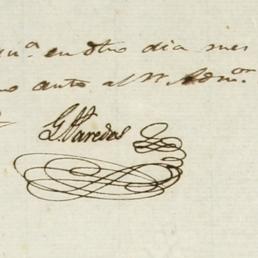 en dho dia mes
auto al Sr. Admor.
G. Paredes